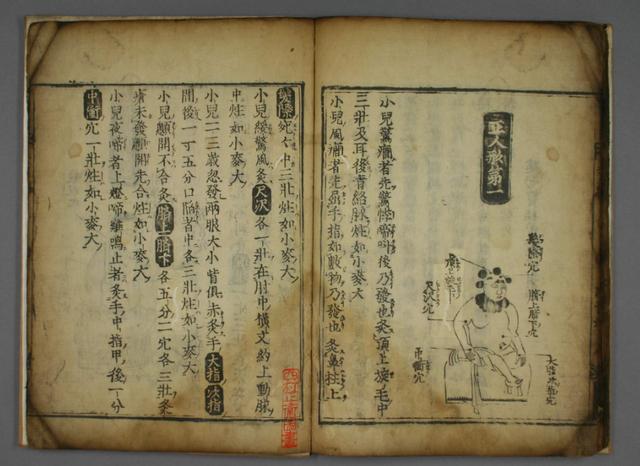 小兒驚癇者先驚怖啼叫後乃發也灸頂上旋毛中
三壯及耳後青絡脉炷如小麥大
小兒風癇者先屈手指如數物乃發也灸鼻柱上
髮際宛々中三壯炷如小麥大
小兒緩驚風灸尺沢各一壯在肘中橫文約上動脉
中炷如小麥大
小兒二三歲忽發兩眼大小眥俱赤灸手大指次指
間後一寸五分口陷者中各三壯炷如小麥大
小兒顖開不合灸臍上臍下各五分二穴各三壯灸
瘡未發顖開先合炷如小麥大
小兒夜啼者上燈啼雞鳴止者灸手中指甲後一分
中衝穴一壯炷如小麥大
髮際穴
臍上臍下穴
尺沢穴
中衝穴